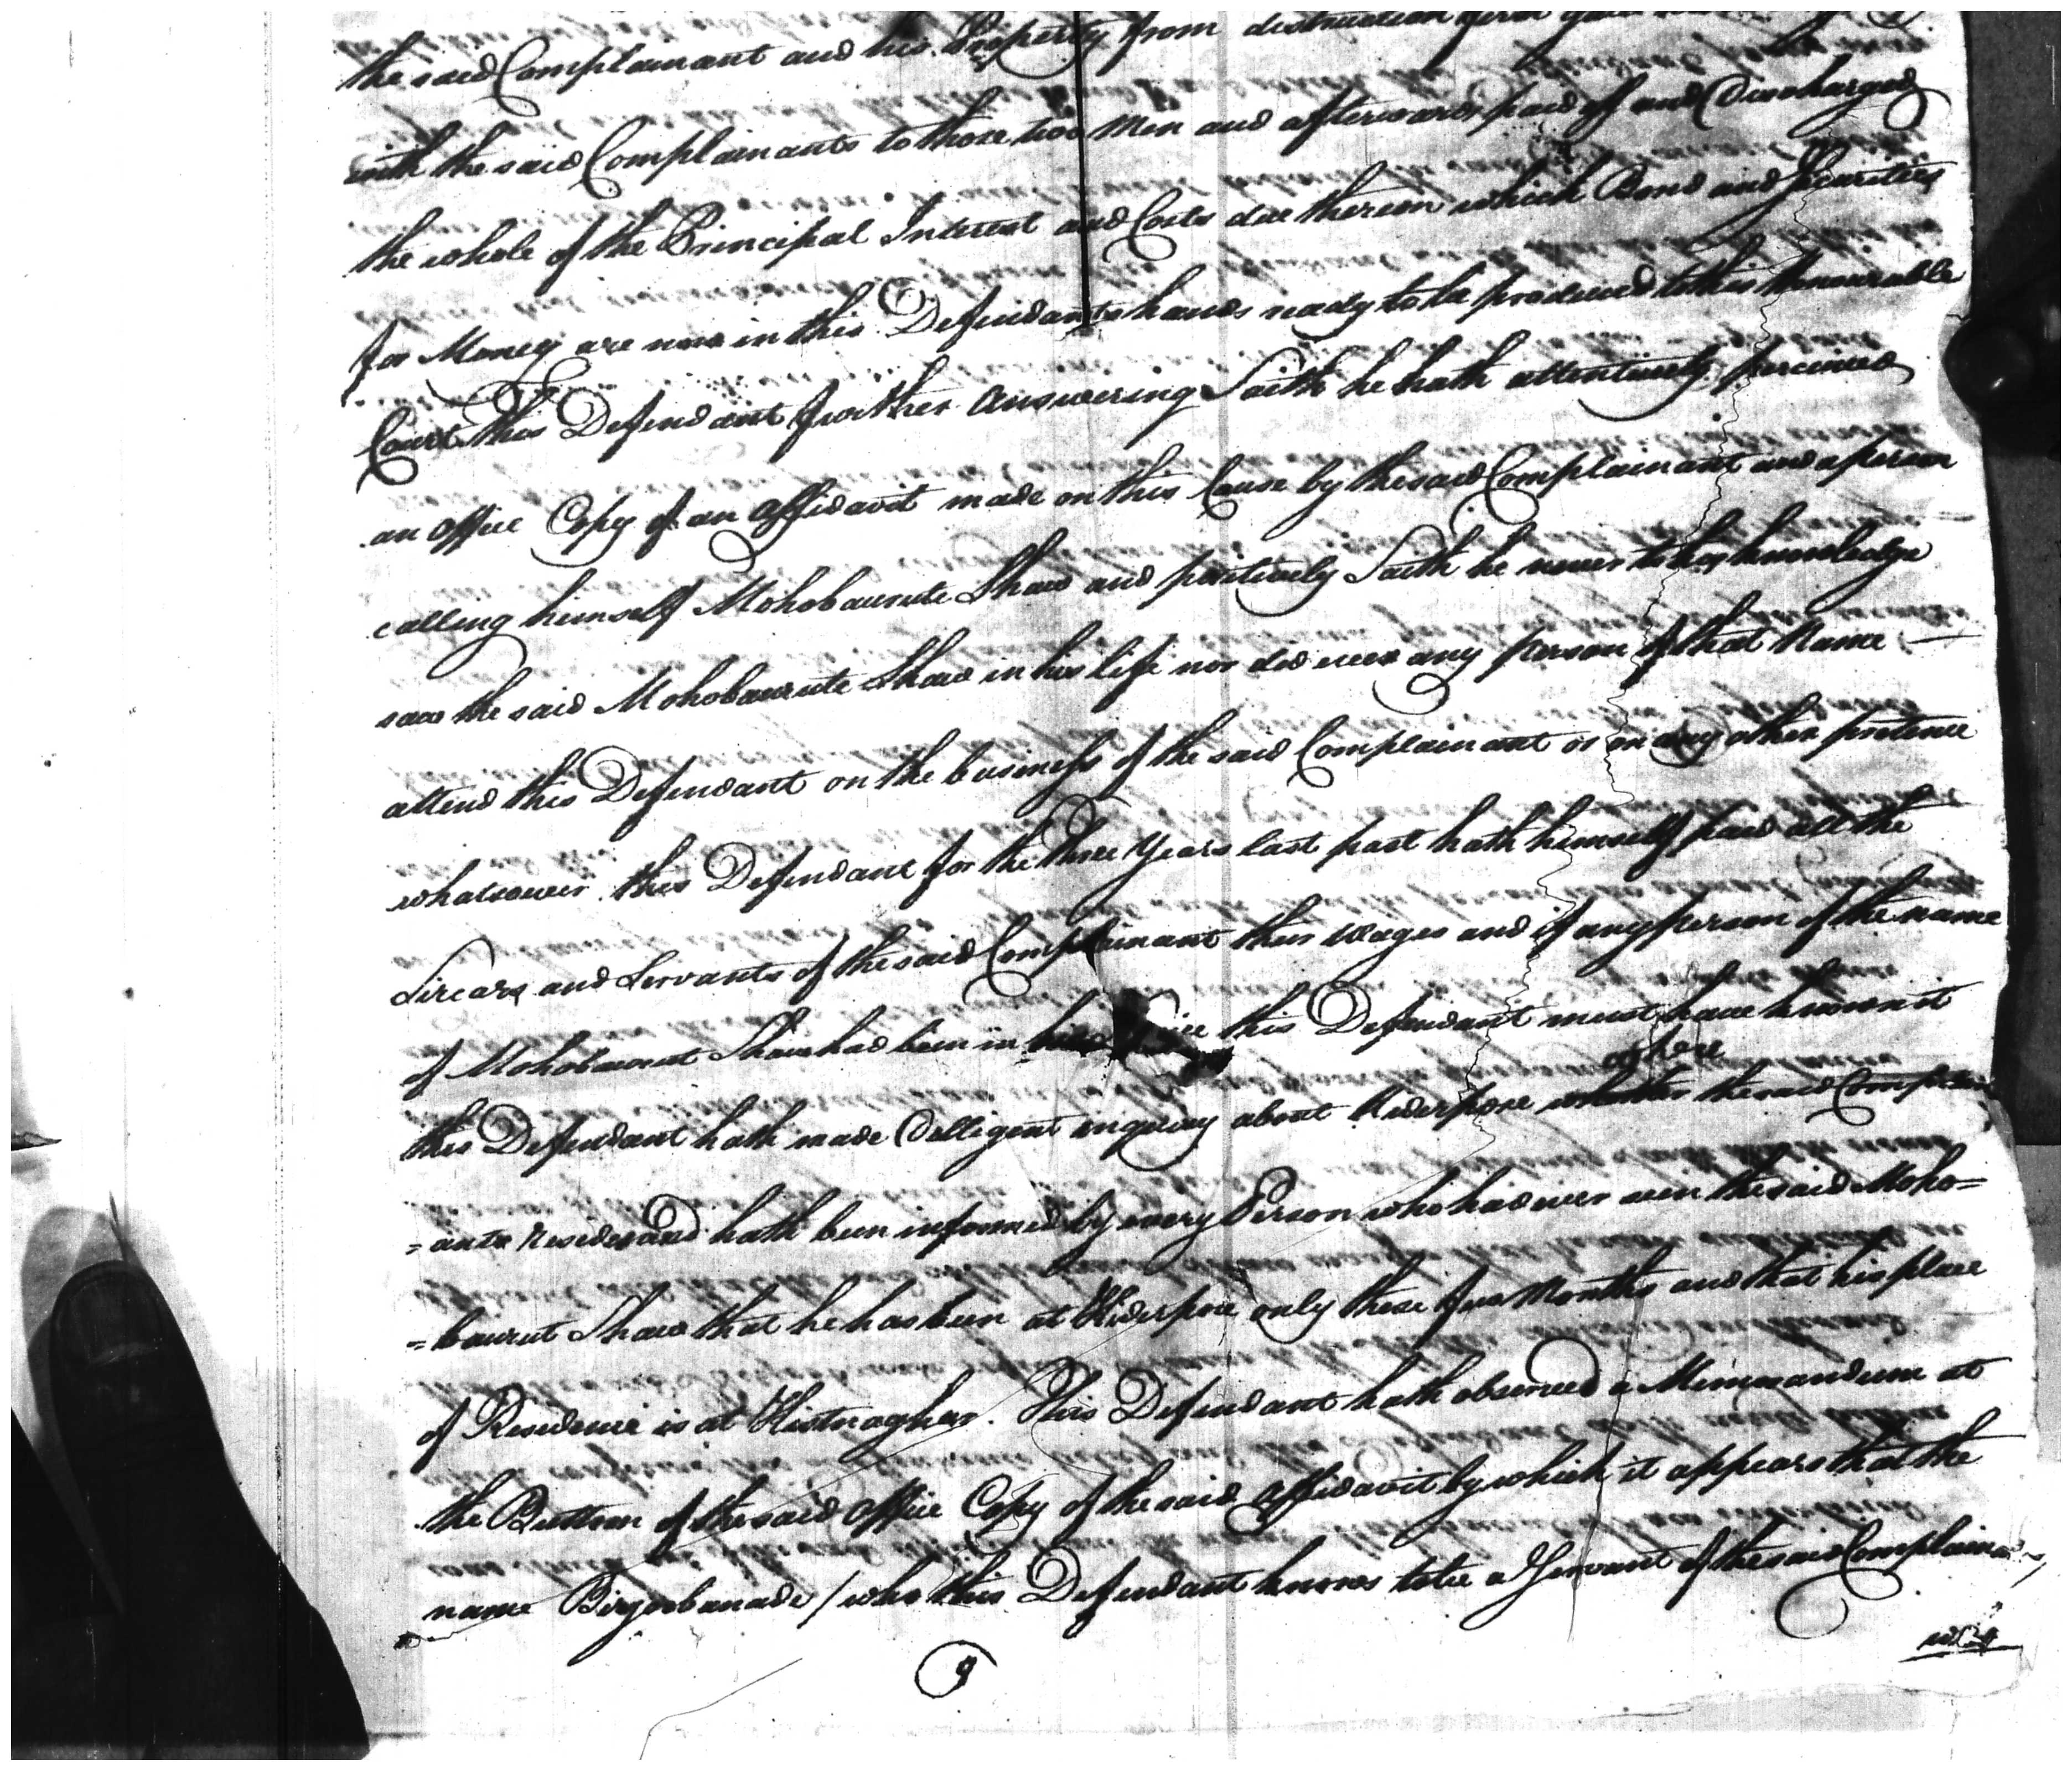 the said Complainant and his Property from destruction
with the said Complainants to those two Men and afterwards paid off and Discharged
the whole of the Principal Interest and Costs due thereon which Bond and Securities
for Money are now in this Defendants hands ready to be produced to this Honourable
Court this Defendant further Answering Saith he hath attentively perceived
an Office Copy of an Affidavit made on this Cause by the said Complainant and a person
calling himself Mohobaurute Shaw and positively Saith he never to his knowledge
saw the said Mohobaurute Shaw in his life nor did ever any person of that Name
attend this Defendant on the business of the said Complainant or on any other pretence
whatsoever this Defendant for the three Years last past hath himself paid all the
Sircars and Servants of the said Complainant their Wages and if any person of the name
of Mohobaurut Shaw had been in his this Defendant must have known it
this Defendant hath made Delligent inquiry about Kiderpore where the said Complain
=ants resides and hath been informed by every Person who had ever seen the said Moho=
=baurut Shaw that he has been at Kiderpore only these few Months and that his place
of Residence is at Kistnaghur. This Defendant hath observed a Memorandum at
the Buttom of the said Office Copy of the said Affidavit by which it appears that the
name Birjoobanade / who this Defendant knows to be a Servant of the said Complain
9